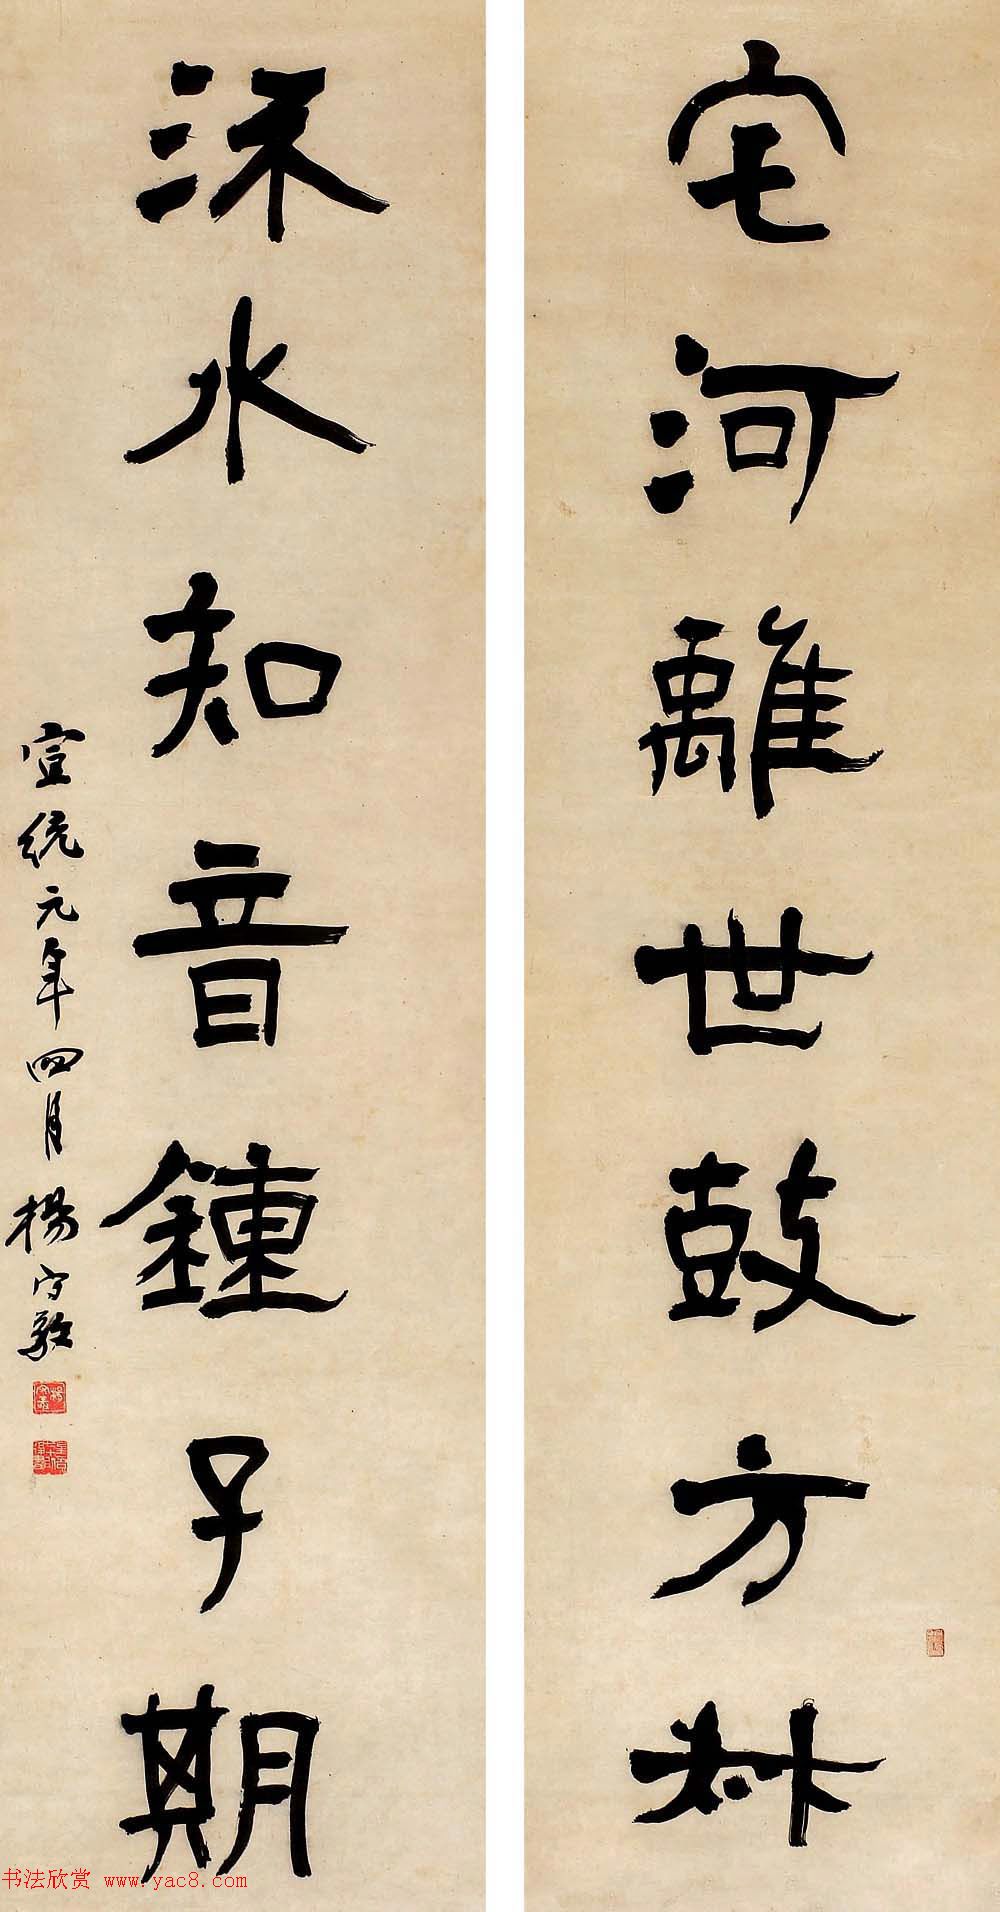 宅河離世鼓方叔
㳅水知音鍾子期
宣統元年四月楊守敬
书法欣赏 www.yac8.com